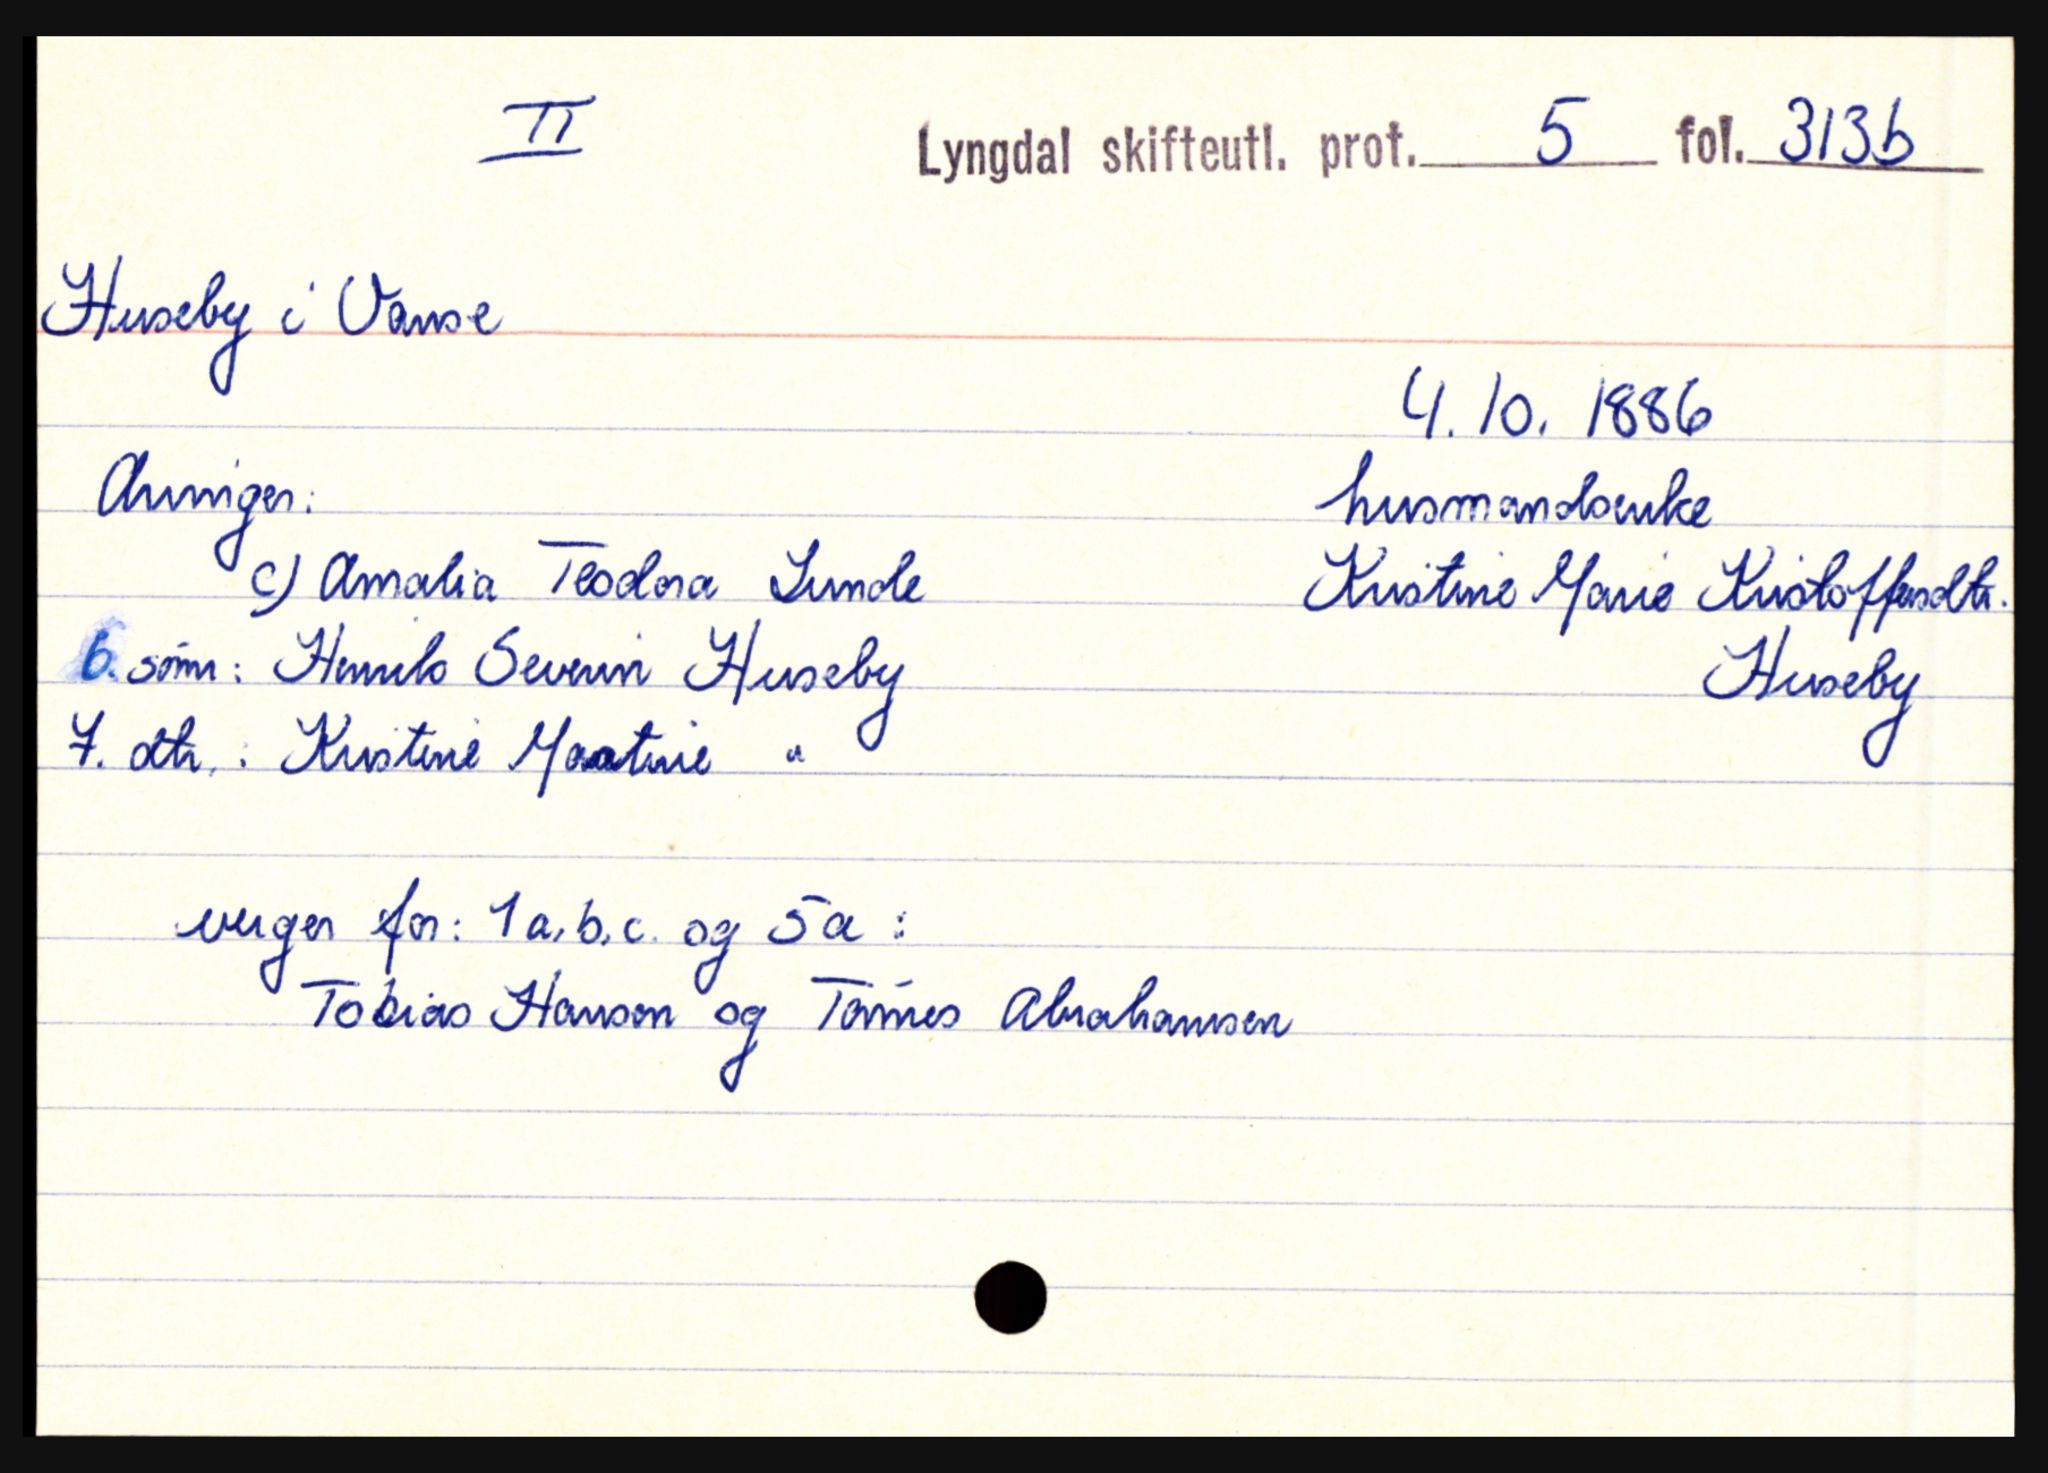 II
Lyngdal skifteutl. prot. 5 fol. 313b
Huseby i Vanse
4. 10. 1886
Arvinger:
husmandsenke
c) Amalia Teodora Lunde
Kristine Marie Kristoffersdtr.
6. sønn: Henrik Severin Huseby
Huseby
7. dtr.: Kristine Martine "
verger for: 1a, b, c. og 5a:
Tobias Hansen og Tønnes Abrahamsen